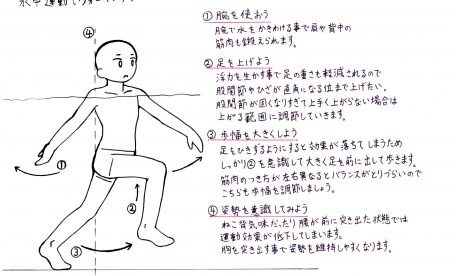 ① 腕を使おう
腕で水をかきわける事で肩や背中の
筋肉も鍛えられます。
② 足を上げよう
浮力を生かす事で足の重さも軽減されるので
股関節やひざが直角になる位まで上げたい。
股関節が固くなりすぎて上手く上がらない場合は
上がる範囲に調節していきます。
③ 歩幅を大きくしよう
足をひきずるようにすると効果が落ちてしまうため
しっかり②を意識して大きく足を前に出して歩きます。
筋肉のつき方が左右異なるとバランスがとりづらいので
こちらも歩幅を調節しましょう。
④ 姿勢を意識してみよう
ねこ背気味だったり腰が前に突き出た状態では
運動効果が低下してしまいます。
胸を突き出す事で姿勢を維持しやすくなります。
④
①
②
③